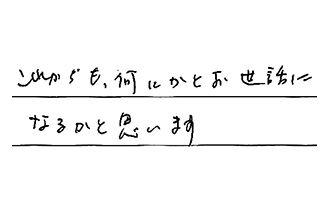 これからも、何にかとお世話に
なるかと思います